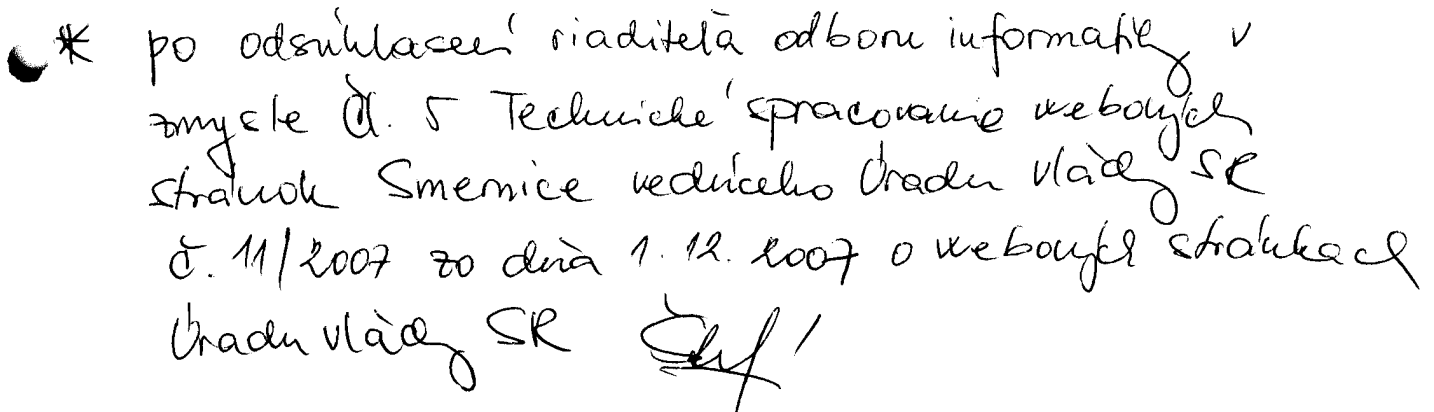 * po odsúhlasení riaditeľa odboru informatiky v
zmysle čl. 5 Technické spracovanie webových
stránok Smernice vedúceho Úradu vlády SR
č. 11/2007 zo dňa 1. 12. 2007 o webových stránkach
Úradu vlády SR